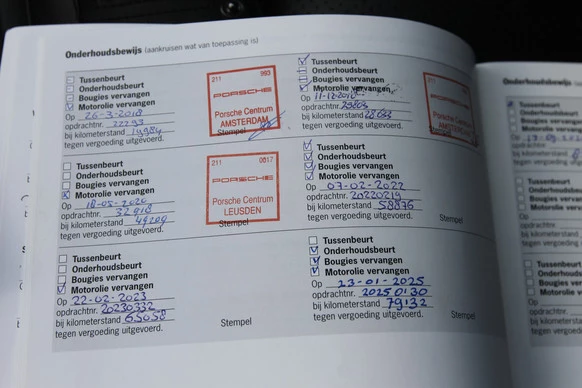 Onderhoudsbewijs (aankruisen wat van toepassing is)
Tussenbeurt
Onderhoudsbeurt
Bougies vervangen
Motorolie vervangen
Op 26-3-2018
opdrachtnr. 22793
bij kilometerstand 14984
tegen vergoeding uitgevoerd.
Stempel
211 993
PORSCHE
Porsche Centrum
AMSTERDAM
Tussenbeurt
Onderhoudsbeurt
Bougies vervangen
Motorolie vervangen
Op 11-12-2018
opdrachtnr. 29603
bij kilometerstand
tegen vergoeding uitgevoerd.
211
PORSCHE
Porsche Centrum
AMSTERDAM
Tussenbeurt
Onderhoudsbeurt
Bougies vervangen
Motorolie vervangen
Op 18-05-2020
opdrachtnr. 32918
bij kilometerstand
tegen vergoeding uitgevoerd.
Stempel
211 0017
PORSCHE
Porsche Centrum
LEUSDEN
Tussenbeurt
Onderhoudsbeurt
Bougies vervangen
Motorolie vervangen
Op 07-02-2022
opdrachtnr. 20220214
bij kilometerstand 58876
tegen vergoeding uitgevoerd.
Stempel
Tussenbeurt
Onderhoudsbeurt
Bougies vervangen
Motorolie vervangen
Op 22-02-2023
opdrachtnr. 20230332
bij kilometerstand 65058
tegen vergoeding uitgevoerd.
Stempel
Tussenbeurt
Onderhoudsbeurt
Bougies vervangen
Motorolie vervangen
Op 23-01-2025
opdrachtnr. 20250130
bij kilometerstand 79132
tegen vergoeding uitgevoerd.
Stempel
Onderhoudsbewijs
Tussenbeurt
Onderhoudsbeurt
Bougies vervangen
Motorolie vervangen
Op
opdrachtnr.
bij kilometerstand
tegen vergoeding
Tussenbeurt
Onderhoudsbeurt
Bougies vervangen
Motorolie vervangen
Op
opdrachtnr.
bij kilometerstand
tegen vergoeding
Tussenbeurt
Onderhoudsbeurt
Bougies vervangen
Motorolie vervangen
Op
opdrachtnr.
bij kilometerstand
tegen vergoeding